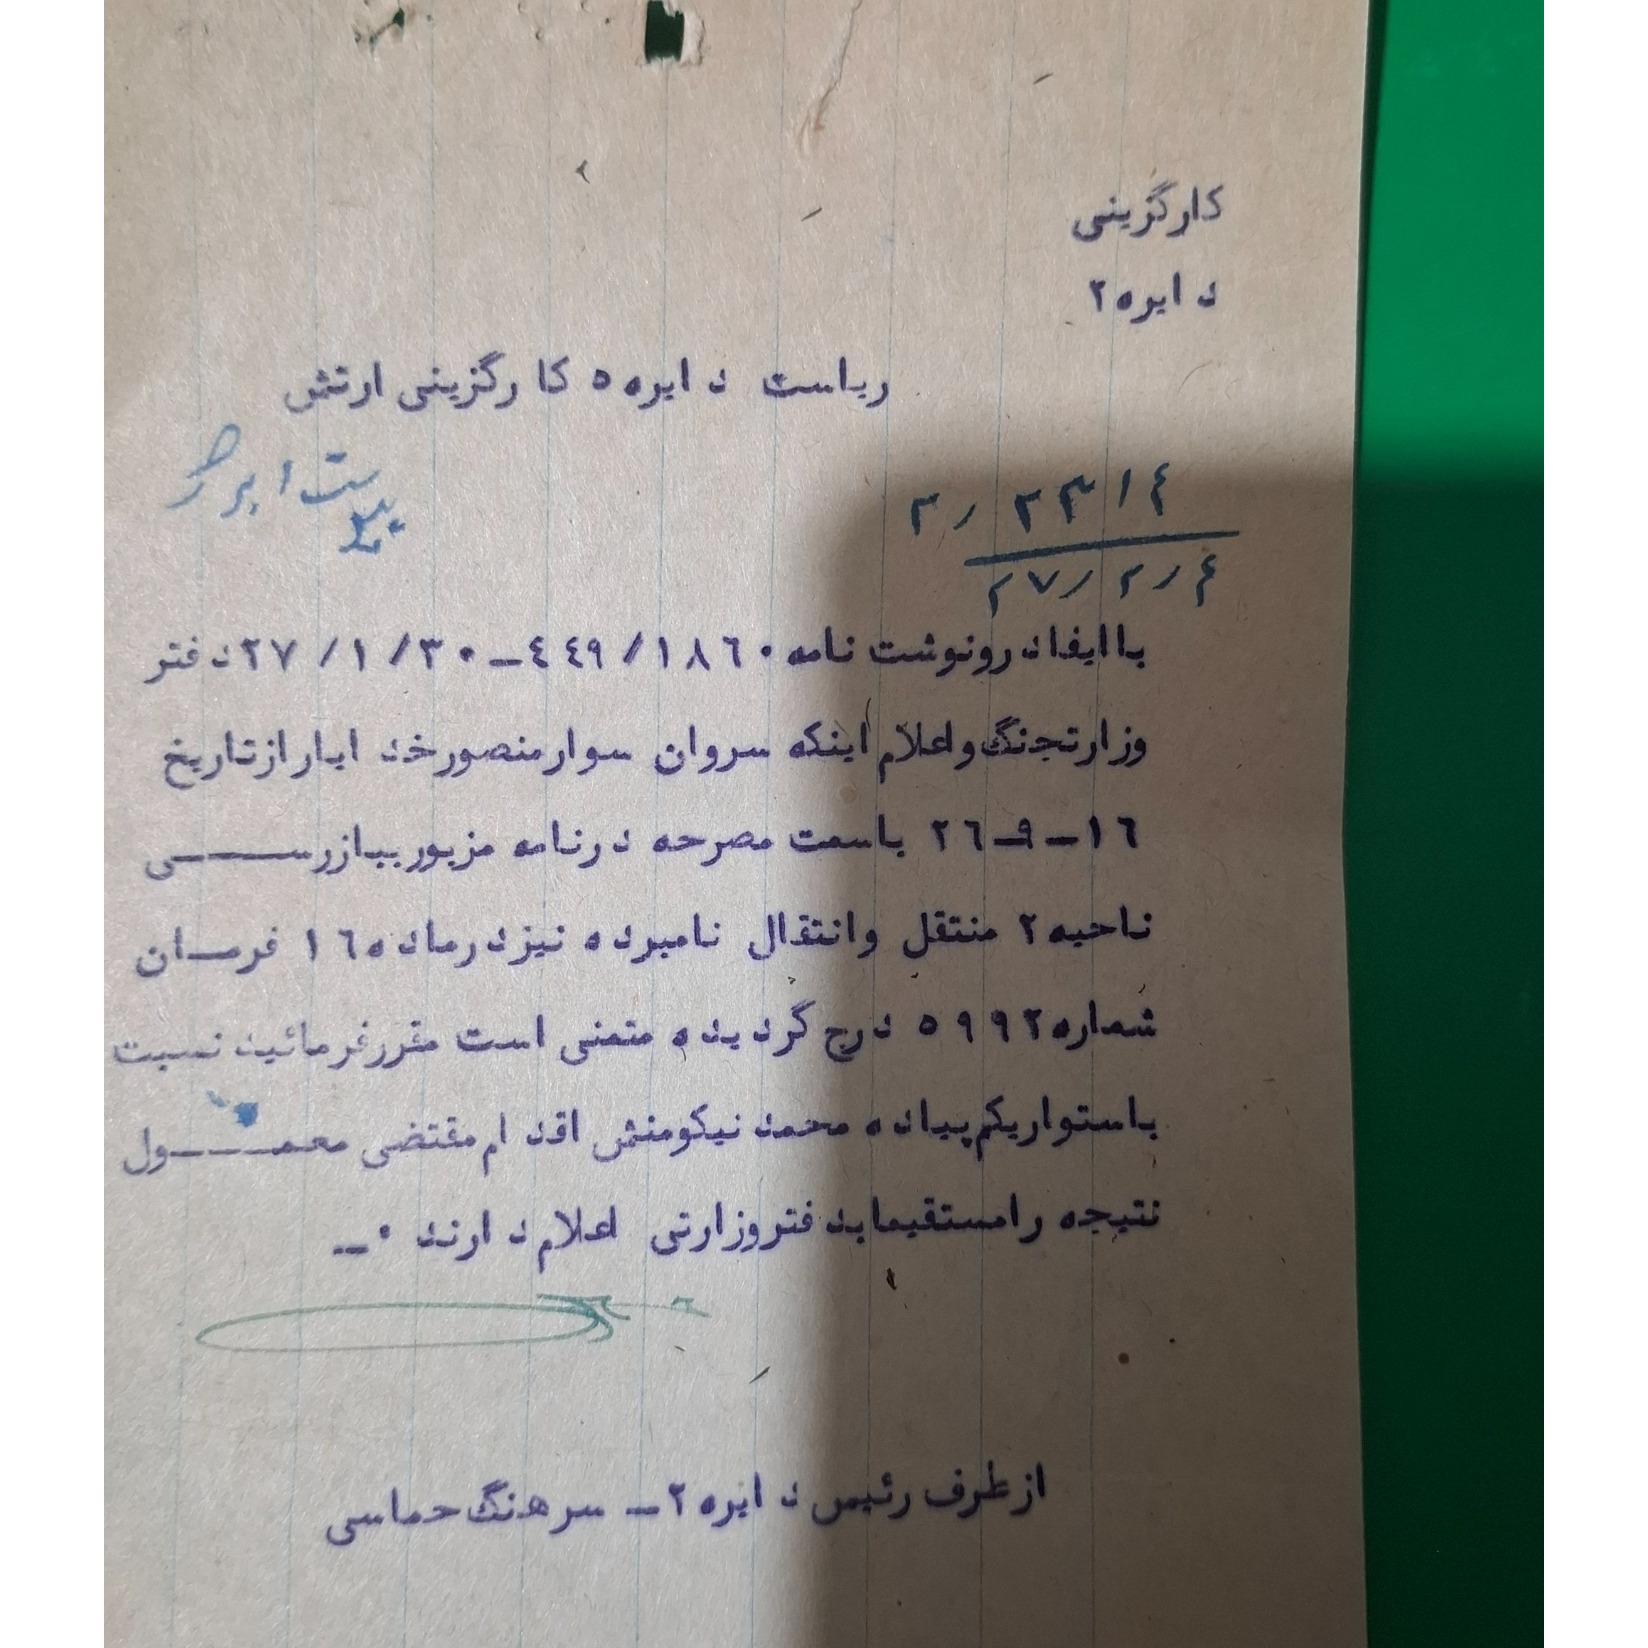 کارگزینی
دایره ۲
ریاست دایره ۵ کارگزینی ارتش
۲۳۱۴ / ۲
۲۷/۲/۴
با ایفاد رونوشت نامه ۴۴۹/۱۸۶۰ـ۲۷/۱/۳۰ دفتر
وزارتجنگ و اعلام اینکه سروان سوار منصور خدایار از تاریخ
۱۶ـ۹ـ۲۶ باسمت مصرحه درنامه مزبور ببازرسـی
ناحیه ۲ منتقل و انتقال نامبرده نیز درماده ۱۶ فرمـان
شماره ۵۹۹۲ درج گردیده متمنی است مقرر فرمائید نسبت
باستواریکم پیاده محمد نیکومنش اقدام مقتضی معمـول
نتیجه را مستقیما بدفتر وزارتی اعلام دارند ۰ـ
از طرف رئیس دایره ۲ـ سرهنگ حماسی